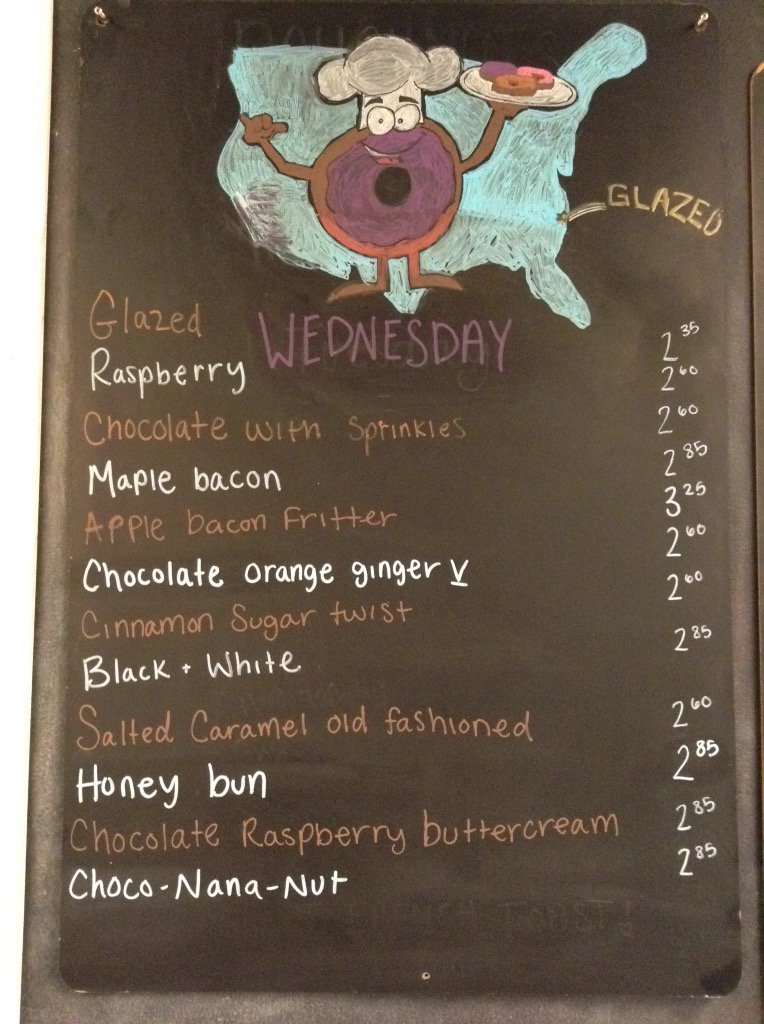 GLAZED
WEDNESDAY
Glazed 2.35
Raspberry 2.60
Chocolate with Sprinkles 2.60
Maple bacon 2.85
Apple bacon Fritter 3.25
Chocolate orange ginger V 2.60
Cinnamon Sugar twist 2.60
Black + White 2.85
Salted Caramel old fashioned 2.60
Honey bun 2.85
Chocolate Raspberry buttercream 2.85
Choco-Nana-Nut 2.85